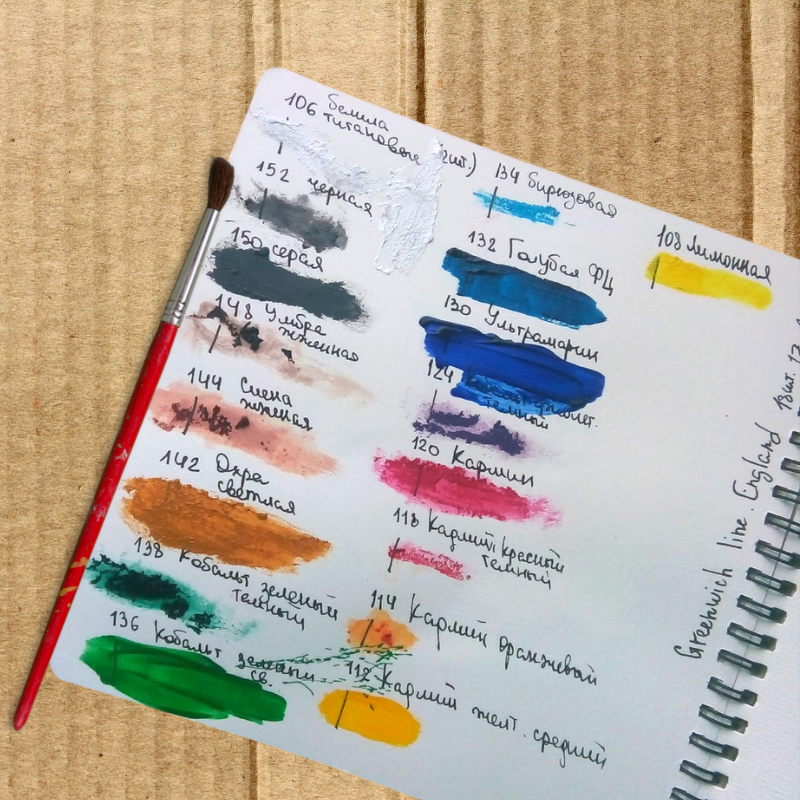 106 белила
титановые (2шт.)
152 черная
150 серая
148 Умбра
жженная
144 Сиена
жженая
142 Охра
светлая
138 Кобальт зеленый
темный
136 Кобальт зеленый
св.
134 бирюзовая
132 Голубая ФЦ
130 Ультрамарин
124
темный
120 Кармин
118 Кадмий красный
темный
114 Кадмий оранжевый
112 Кадмий желт. средний
108 Лимонная
Greenwich line. England 18шт.